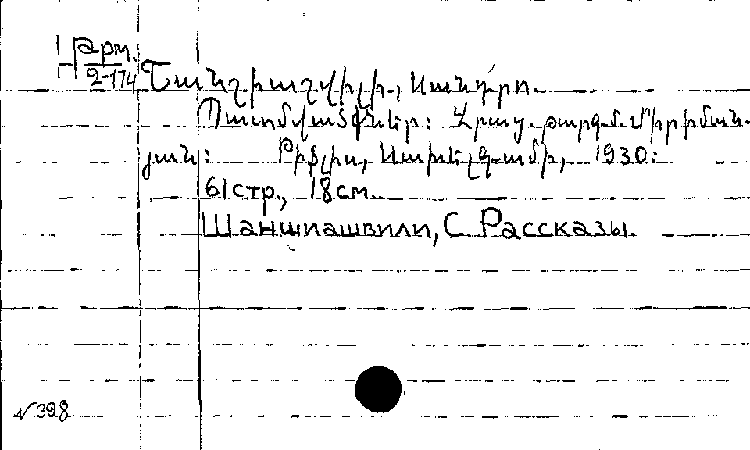 Арм.
2-174
Շանշիաշվիլի, Սանդրո.
Պատմվածքներ: Վրաց. թարգմ. Միրիման-
յան: Թիֆլիս, 1930:
61 стр., 18 см.
Шаншиашвили, С. Рассказы.
N 398